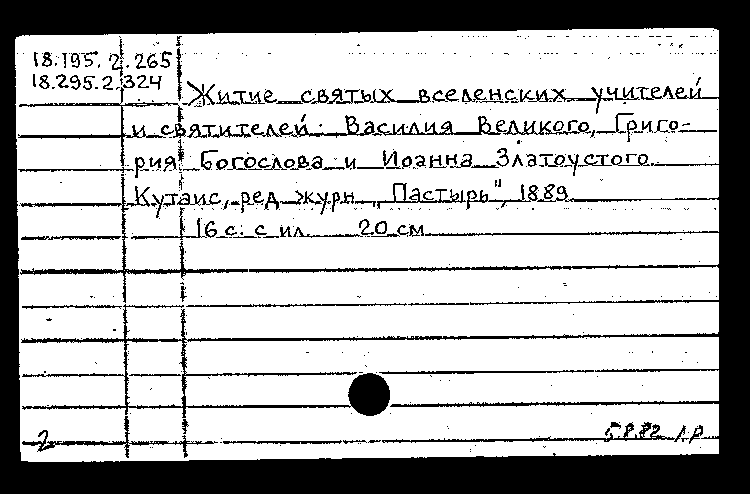 18.195.2.265
18.295.2.324
Житие святых вселенских учителей
и святителей: Василия Великого, Григо-
рия Богослова и Иоанна Златоустого
Кутаис, ред журн „Пастырь", 1889
16 с. с ил. 20 см
2
5.8.82